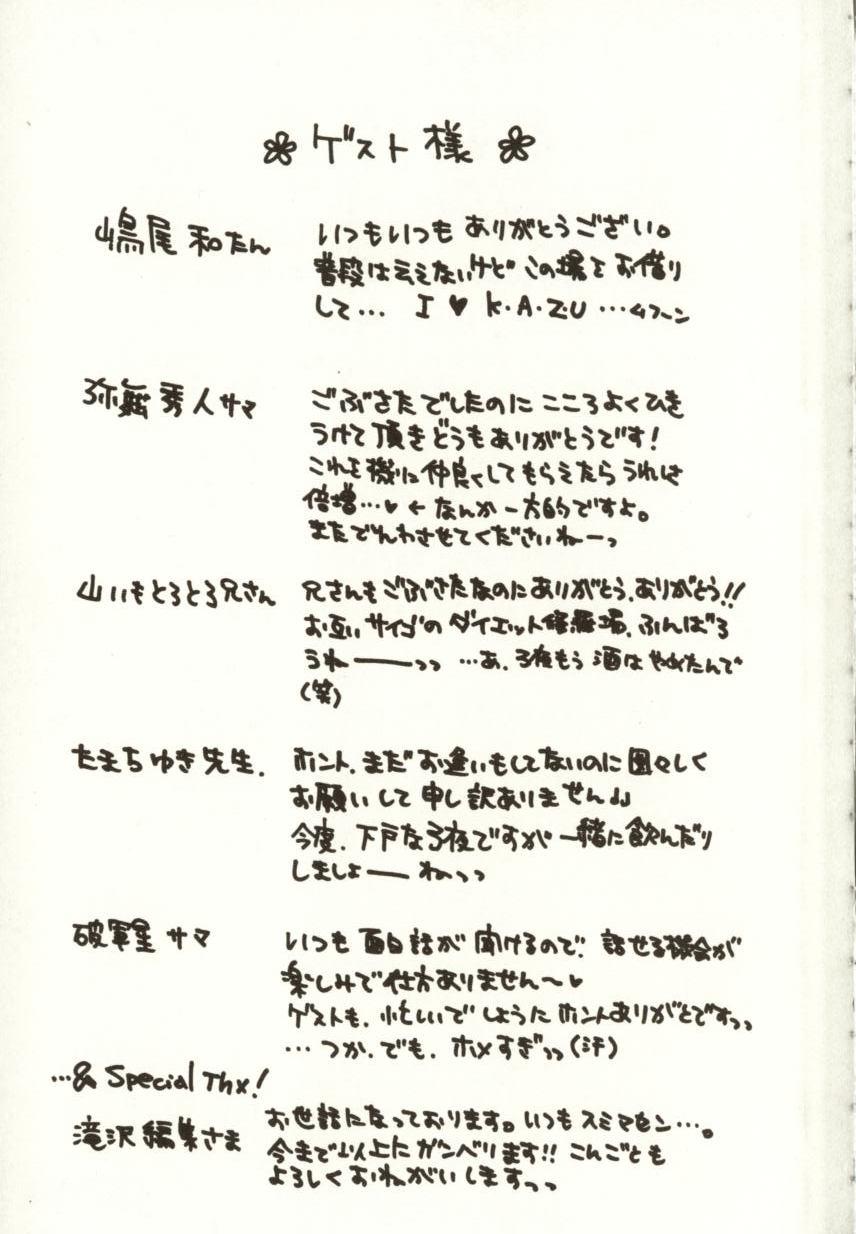 ゲスト様
嶋尾和たん
いつもいつもありがとうござい。
普段は云えないけどこの場をお借り
して… I ♥ K・A・Z・U …ムフーン
弥舞秀人サマ
ごぶさたでしたのにこころよくひき
うけて頂きどうもありがとうです!
これを機に仲良くしてもらえたらうれしさ
倍増…♥ ←なんか一方的ですよ。
またでんわさせてくださいねーっ
山いもとろとろ兄さん
兄さんもごぶさたなのにありがとう、ありがとう!!
お互いサイゴのダイエット修羅場、ふんばろ
うねーーっっ …あ、子夜もう酒はやめたんで
(笑)
たまちゆき先生.
ホント、まだお逢いもしてないのに図々しく
お願いして申し訳ありません
今度、下戸な子夜ですが一緒に飲んだり
しましょーーねっっ
破軍星サマ
いつも面白話が聞けるので、話せる機会が
楽しみで仕方ありません〜♥
ゲストも、忙しいでしょうにホントありがとですっっ
…つか、でも、ホメすぎっっ(汗)
…& Special Thx!
滝沢編集さま
お世話になっております。いつもスミマセン…。
今まで以上にガンバります!! こんごとも
よろしくおねがいしますっっ